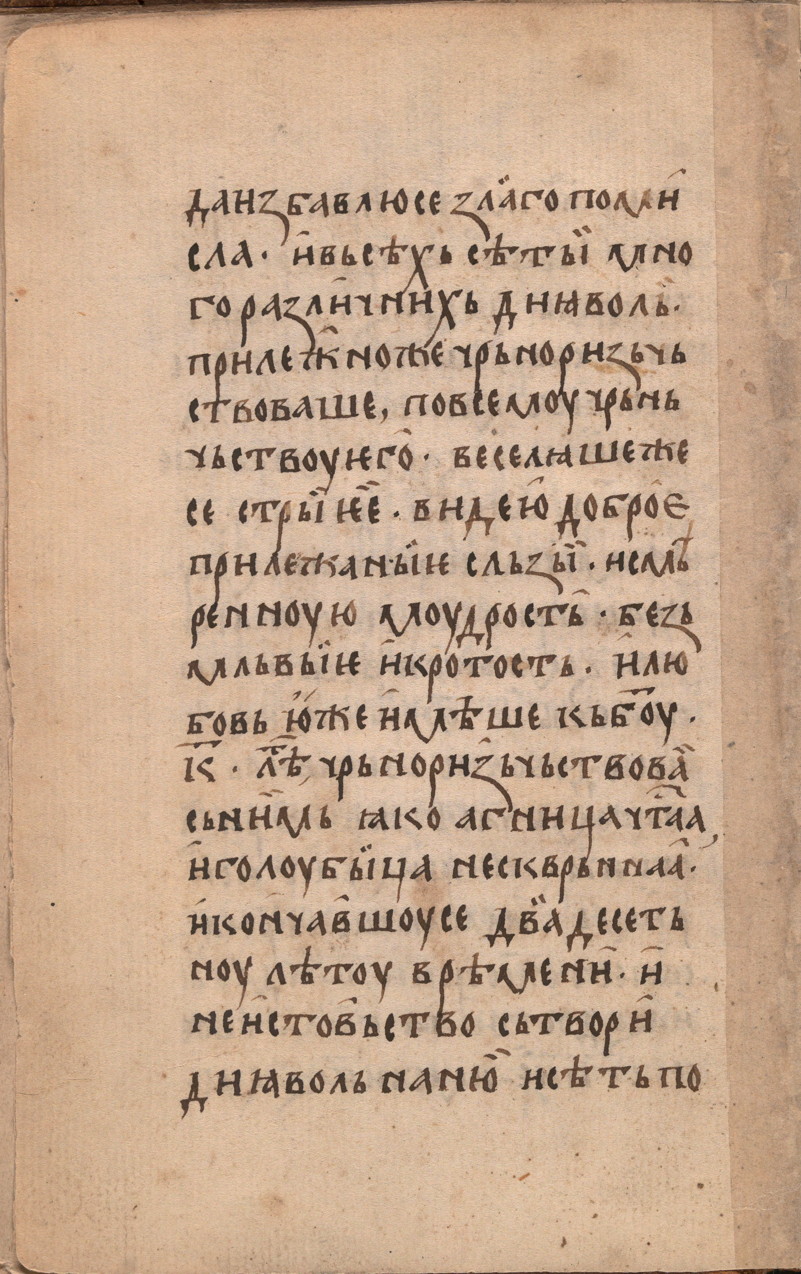 данꙁбавлюсе ꙁла́го помꙑ
сла · и҆вьсѣхь сѣты̏ и҆ мно
го раꙁли́чнихь диꙗволь ·
прилежно же чрьнориꙁьчь
ствоваше, повсемоу чрьнь
чьствоу ѥго̀ · веселꙗшеже
се стры̏ ѥѐ · видею̀ доброѐ
прилежаны̏ѥ сльꙁы̏ · и смѣ
ренноую моудрость̀ · беꙁь
мльвы̏ѥ и҆кротость · и҆лю
бовь ю҆же и҆мѣше кьбо҃у ·
к҃ · лѣ҃ чрьнориꙁьчьствова̏
сьни́мь ꙗко агница чт҃аа
и҆голоубы̏ца нескврьннаа̀ ·
и҆кончав̀шоусе два̏десеть
ноу лѣтоу врѣмени̏ · и҆
неи҆стов̀ьство сьтвори̏
диꙗволь наню̏ и сѣть по